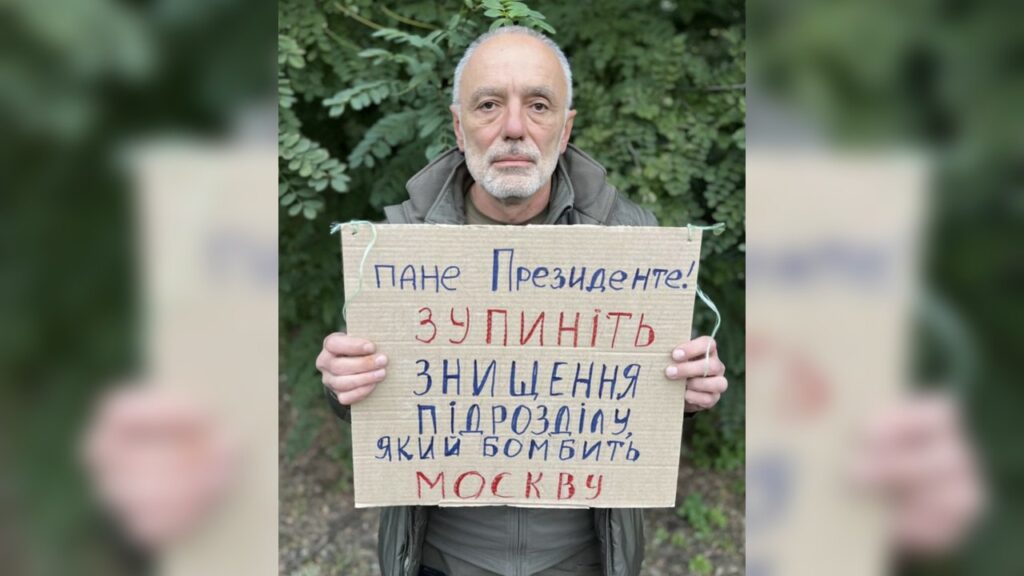 ПАНЕ ПРЕЗИДЕНТЕ!
ЗУПИНІТЬ
ЗНИЩЕННЯ
ПІДРОЗДІЛУ,
ЯКИЙ БОМБИТЬ
МОСКВУ